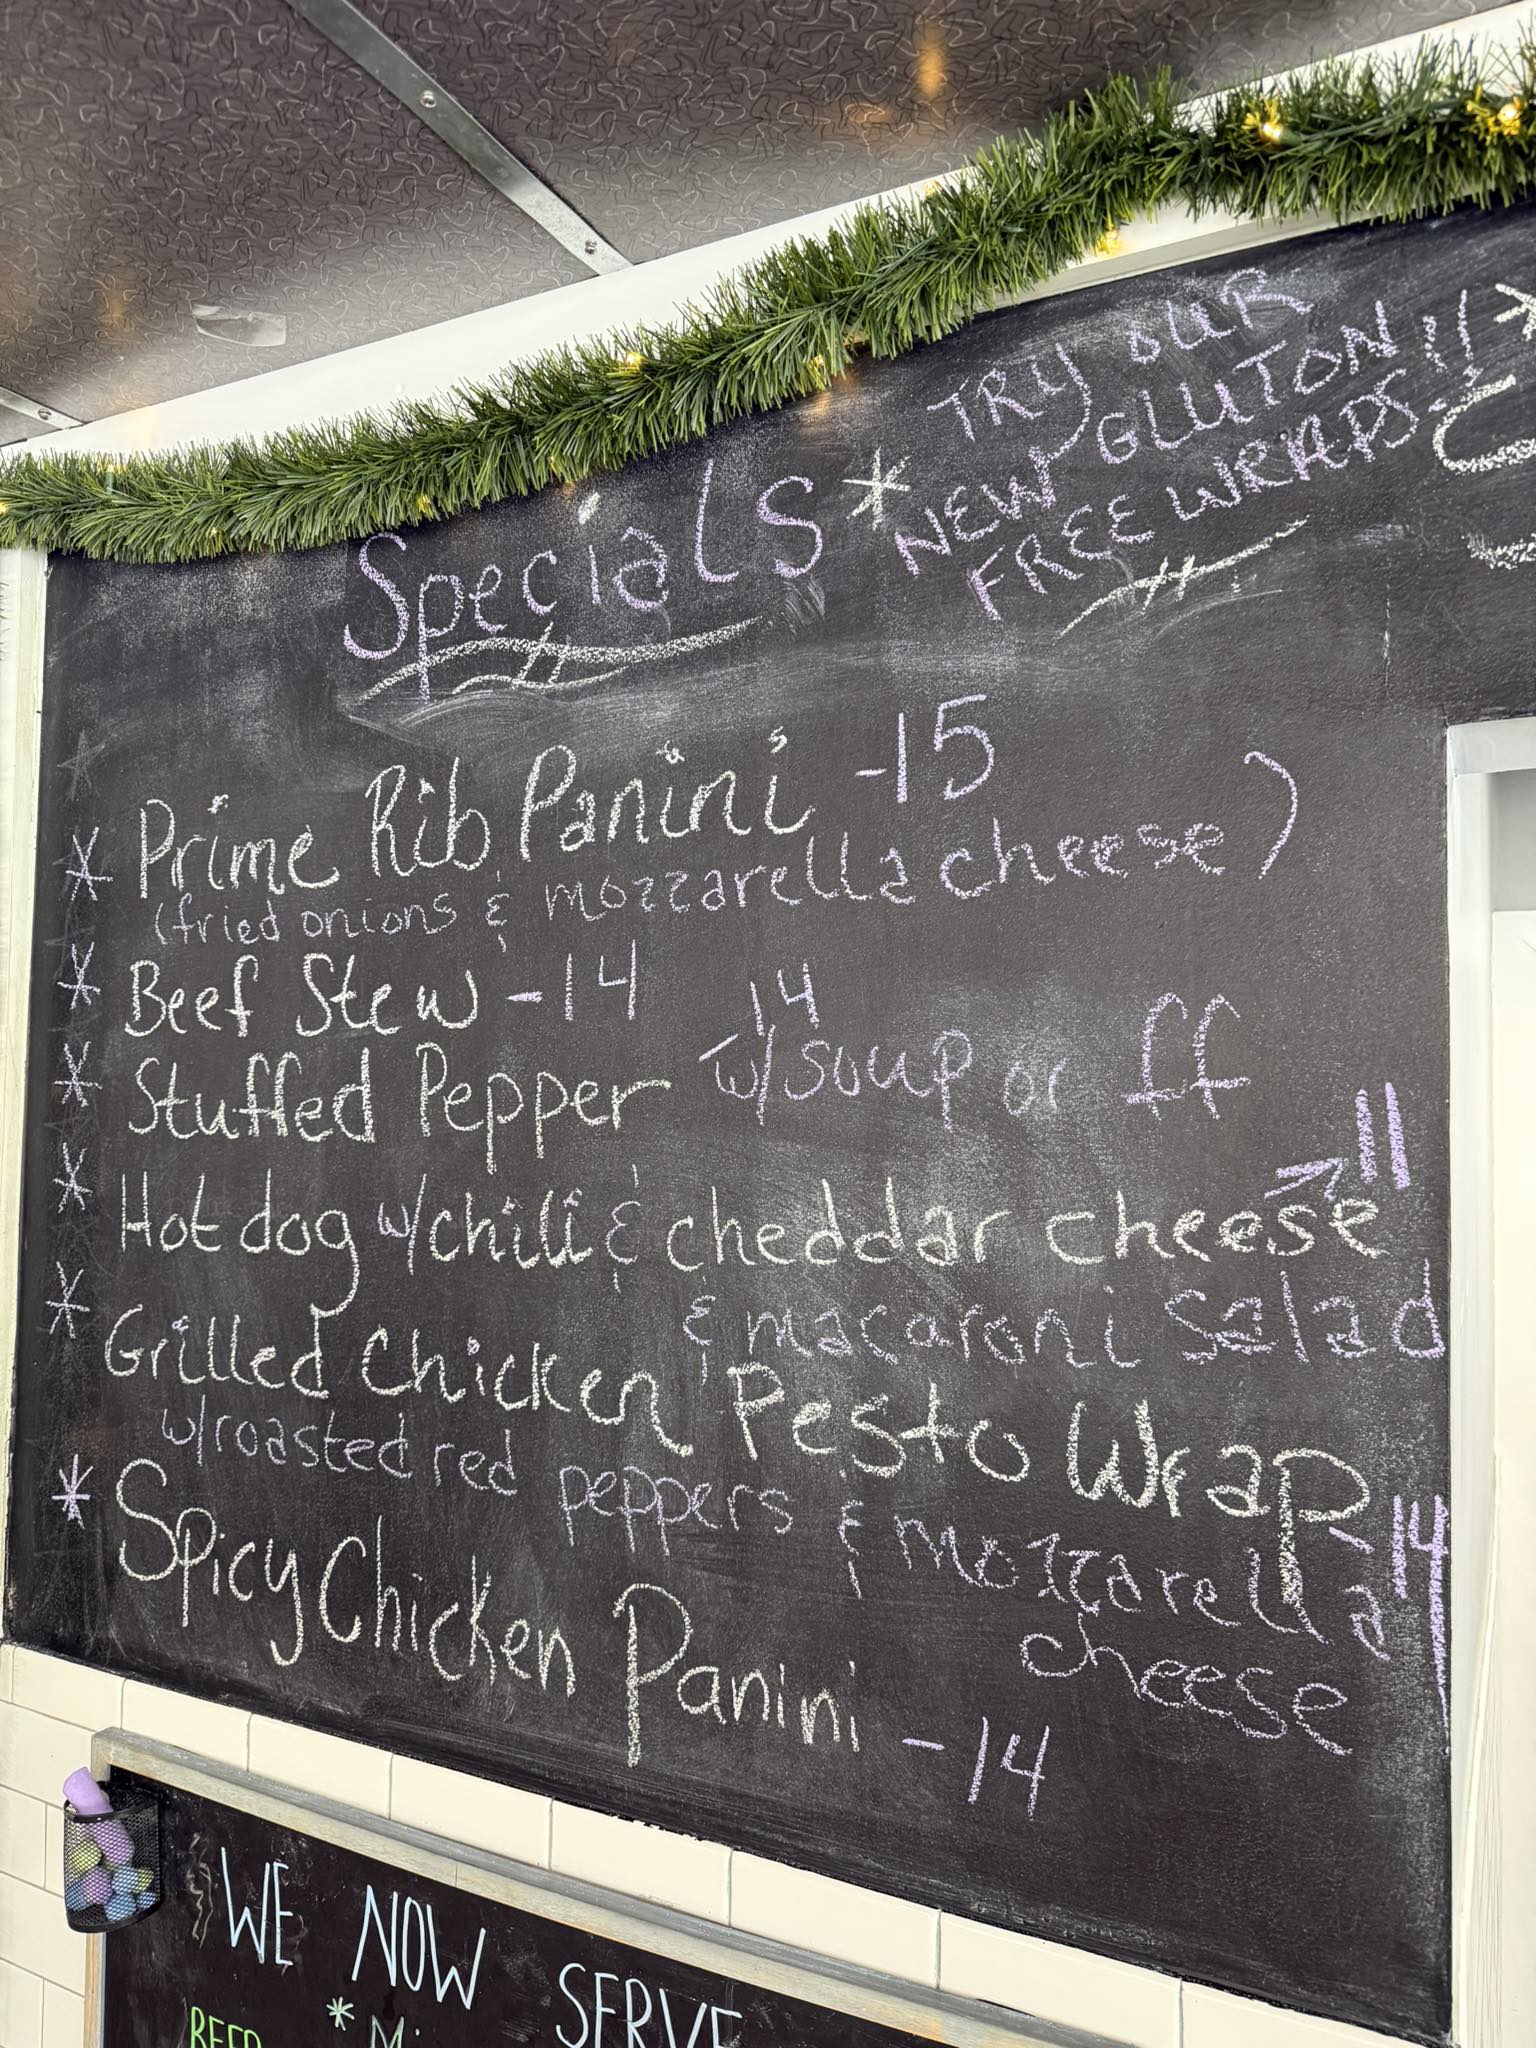 Specials
* TRY OUR
NEW GLUTON
FREE WRAPS!!
* Prime Rib Panini -15
(fried onions & mozzarella cheese)
* Beef Stew -14
* Stuffed Pepper -14 w/soup or ff
* Hot dog w/chili & cheddar cheese -11
& macaroni Salad
* Grilled Chicken Pesto Wrap -14
w/roasted red peppers & mozzarella
cheese
* Spicy Chicken Panini -14
WE NOW SERVE
BEER *